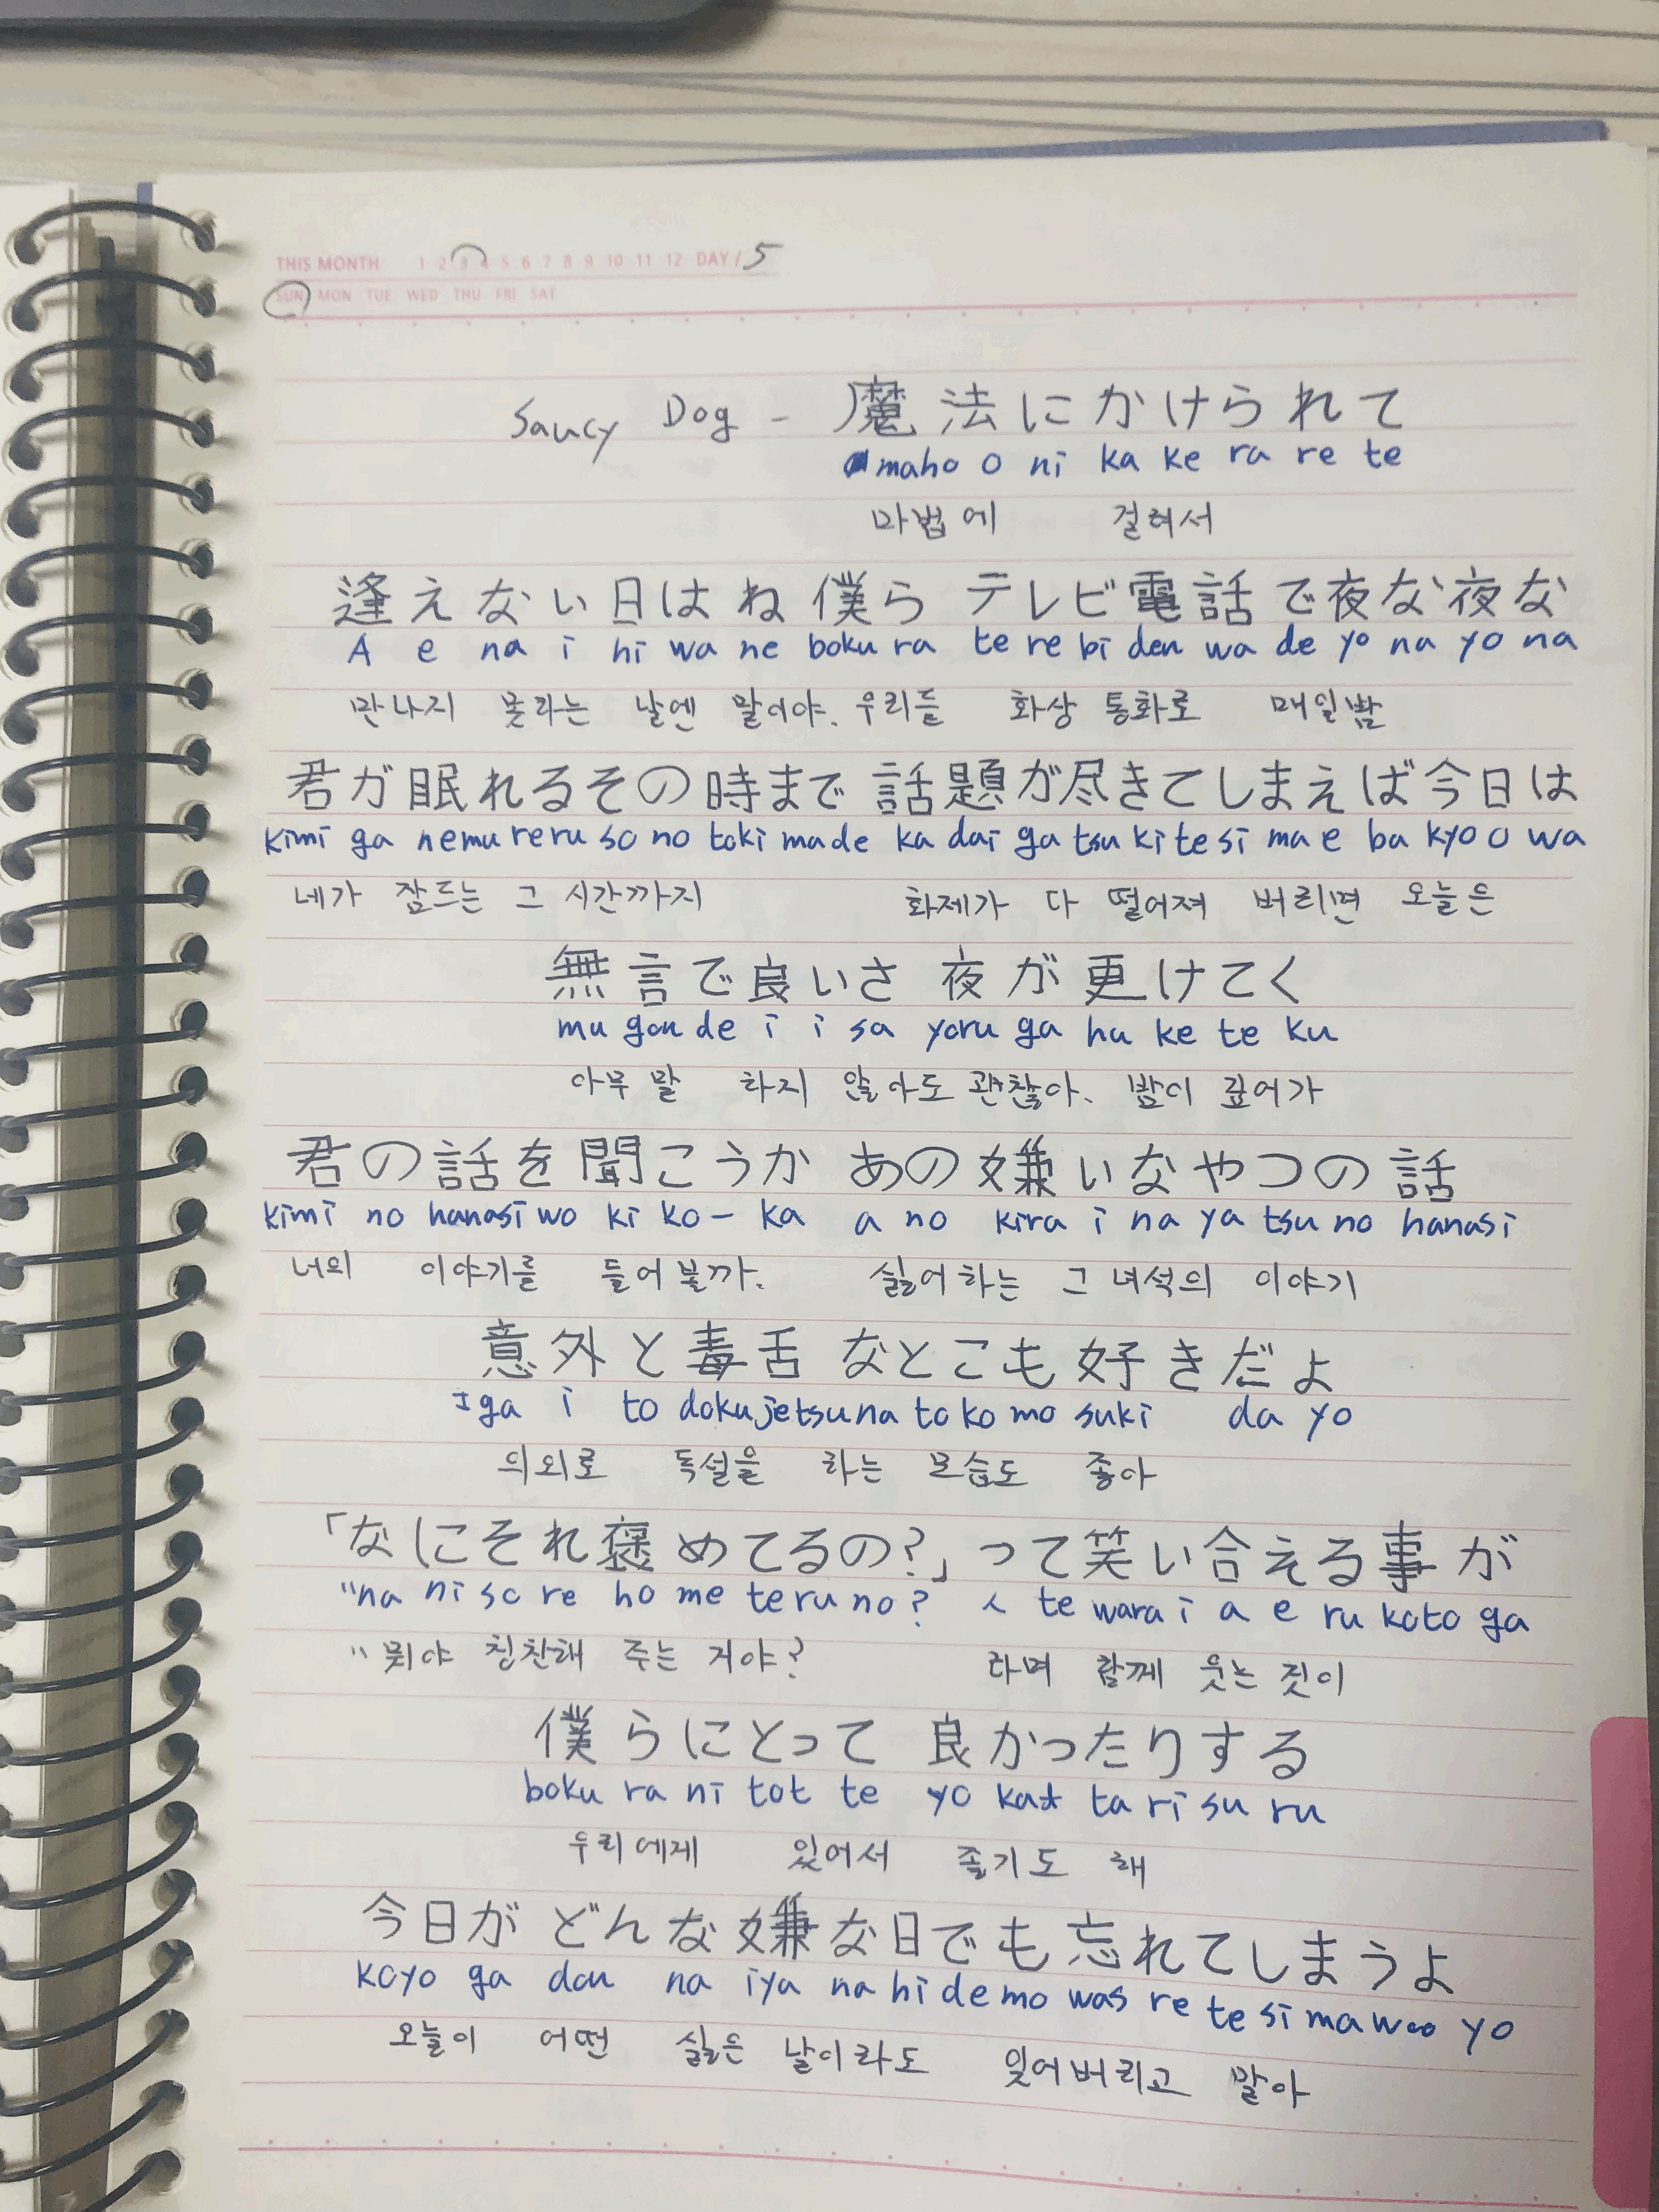 THIS MONTH 1 2 3 4 5 6 7 8 9 10 11 12 DAY / 5
SUN MON TUE WED THU FRI SAT
Saucy Dog - 魔法にかけられて
maho o ni ka ke ra re te
마법에 걸려서
逢えない日はね僕ら テレビ電話で夜な夜な
A e na i hi wa ne boku ra te re bi den wa de yo na yo na
만나지 못하는 날엔 말이야. 우리들 화상 통화로 매일밤
君が眠れるその時まで 話題が尽きてしまえば今日は
kimi ga nemu reru so no toki made ka dai ga tsu ki te si ma e ba kyo o wa
네가 잠드는 그 시간까지 화제가 다 떨어져 버리면 오늘은
無言で良いさ 夜が更けてく
mu gon de i i sa yoru ga hu ke te ku
아무 말 하지 않아도 괜찮아. 밤이 깊어가
君の話を聞こうか あの嫌いなやつの話
kimi no hanasi wo ki ko - ka a no kira i na ya tsu no hanasi
너의 이야기를 들어볼까. 싫어하는 그 녀석의 이야기
意外と毒舌なとこも好きだよ
Iga i to doku jetsu na to ko mo suki da yo
의외로 독설을 하는 모습도 좋아
「なにそれ褒めてるの?」って笑い合える事が
"na ni so re ho me te ru no? ㅅ te wara i a e ru koto ga
"뭐야 칭찬해 주는 거야? 라며 함께 웃는 것이
僕らにとって 良かったりする
boku ra ni tot te yo kat ta ri su ru
우리에게 있어서 좋기도 해
今日がどんな嫌な日でも忘れてしまうよ
koyo ga don na iya na hi de mo was re te si ma woo yo
오늘이 어떤 싫은 날이라도 잊어버리고 말아